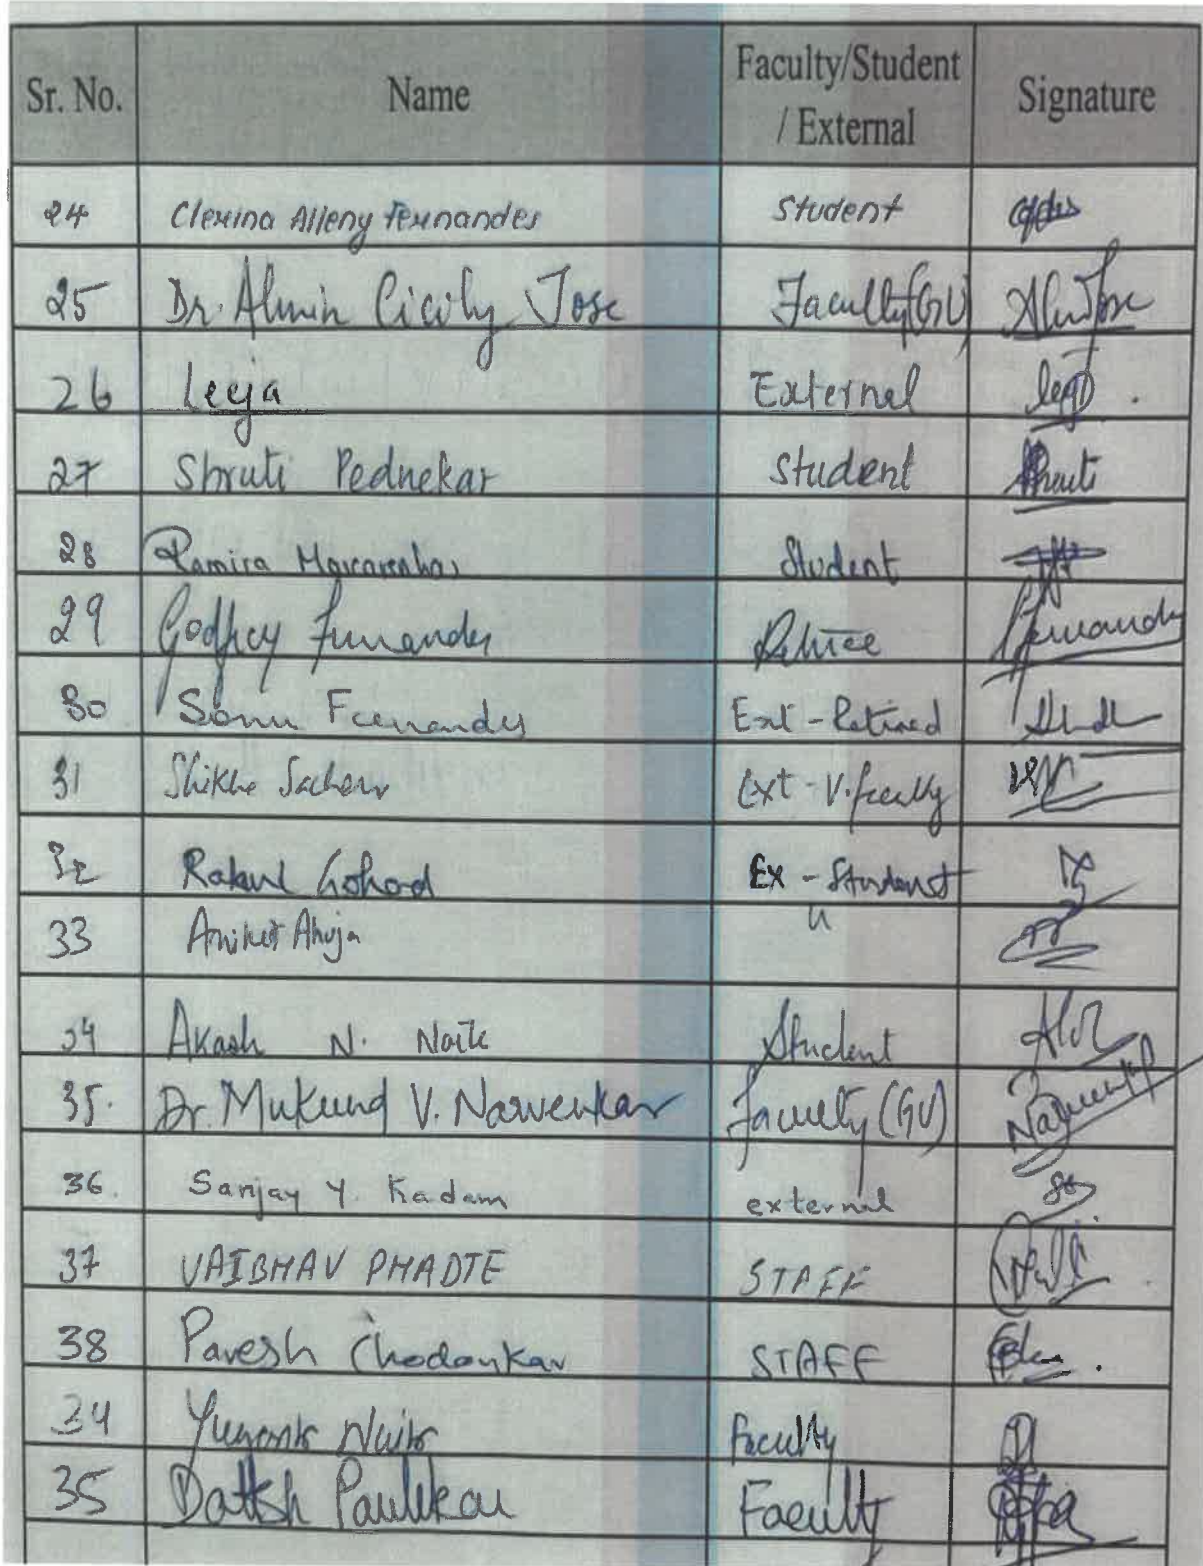 Sr. No. Name Faculty/Student / External Signature
24 Clerina Alleny Fernandes Student
25 Dr. Almin Cicily Jose Faculty (GU)
26 Leeja External
27 Shruti Pednekar Student Shruti
28 Ramira Mascarenhas Student
29 Godfrey Fernandes Retiree Fernandes
30 Sonu Fernandes Ext - Retired
31 Shikha Ext - V. faculty
32 Ex - Student
33 Aniket Ahuja "
34 Akash N. Naik Student
35. Dr. Mukund V. Narvenkar Faculty (GU)
36. Sanjay Y. Kadam external
37 VAIBHAV PHADTE STAFF
38 Paresh Chodankar STAFF
34 Yugank Naik Faculty
35 Faculty